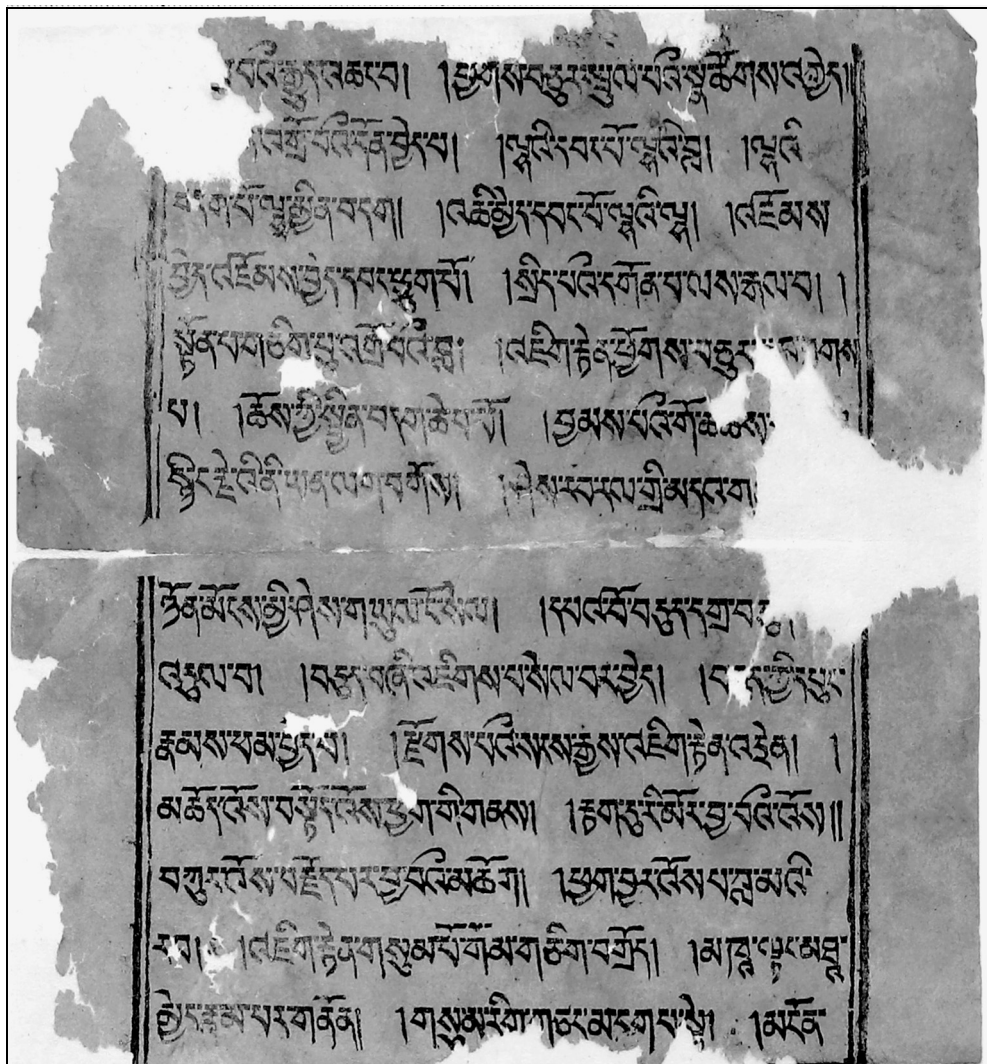 པའི་རྒྱུད་འཆང་བ། །ཕྱོགས་བཅུར་སྤྲུལ་པའི་སྣ་ཚོགས་འགྱེད།།
འགྲོ་བའི་དོན་བྱེད་པ། །ལྷའི་དབང་པོ་ལྷའི་བླ། །ལྷའི་
དབང་པོ་ལྷ་མྱིན་བདག། །འཆི་མྱེད་དབང་པོ་ལྷའི་ལྷ། །འཇོམས་
བྱེད་འཇོམས་བྱེད་དབང་ཕྱུག་པོ། །སྲིད་པའི་དགོན་པ་ལས་རྒལ་བ། །
སྟོན་པ་གཅིག་པུ་འགྲོ་བའི་བླ། །འཇིག་རྟེན་ཕྱོགས་བཅུར་ གྲགས
པ། །ཆོས་ཀྱི་སྦྱིན་བདག་ཆེ་བ་པོ། །བྱམས་པའི་གོ་ཆ་ཆས་
སྙིང་རྗེ་འི་ནི་ཡན་ལག་བགོས། །ཤེས་རབ་རལ་གྲི་མདའ་ག
ཉོན་མོངས་མྱི་ཤེས་གཡུལ་ངོ་སེལ། །དཔའ་བོ་བདུད་དགྲ་བདུད་
འདུལ་བ། །བདུད་བཞི་འཇིགས་པ་སེལ་བར་བྱེད། །བདུད་ཀྱི་དཔུང་
རྣམས་ཕམ་བྱེད་པ། །རྫོགས་པའི་སངས་རྒྱས་འཇིག་རྟེན་འདྲེན། །
མཆོད་འོས་བསྟོད་འོས་ཕྱག་གི་གནས། །རྟག་ཏུ་རི་མོར་བྱ་བའི་འོས།།
བཀུར་འོས་བརྗོད་པར་བྱ་བའི་མཆོག། །ཕྱག་བྱར་འོས་པ་བླ་མའི་
རབ། །འཇིག་རྟེན་གསུམ་པོ་གོམ་གཅིག་བགྲོད། །མཁའ་ལྟར་མཐའ་
མྱེད་རྣམ་པར་གནོན། །གསུམ་རིག་གཙང་མ་དག་པ་སྟེ། །མངོན་